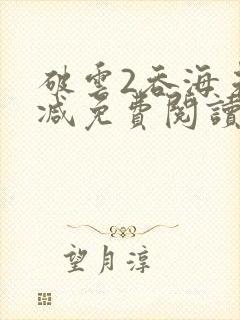 破雲2吞海
減免費閱讀
望月淳